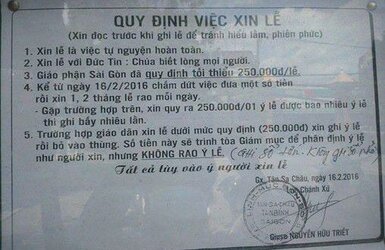 QUY ĐỊNH VIỆC XIN LỄ
(Xin đọc trước khi ghi lễ để tránh hiểu lầm, phiền phức)
1. Xin lễ là việc tự nguyện hoàn toàn.
2. Xin lễ với Đức Tin : Chúa biết lòng mọi người.
3. Giáo phận Sài Gòn đã quy định tối thiểu 250.000đ/lễ.
4. Kể từ ngày 16/2/2016 chấm dứt việc đưa một số tiền
rồi xin 1, 2 tháng lễ rao mỗi ngày.
- Gặp trường hợp trên, xin quy ra 250.000đ/01 ý lễ được bao nhiêu ý lễ
thì ghi bấy nhiêu lần.
5. Trường hợp giáo dân xin lễ dưới mức quy định (250.000đ) xin ghi ý lễ
rồi bỏ vào thùng. Số tiền này sẽ trình tòa Giám mục để phân định ý lễ
như người xin, nhưng KHÔNG RAO Ý LỄ. (Ghi số lớn. Không ghi số nhỏ)
Tất cả tùy vào ý người xin lễ
Gx. Tân Sa Châu, 16.2.2016
Chánh Xứ
TÂN SA CHÂU
TÂN BÌNH
SAIGON
Giuse NGUYỄN HỮU TRIẾT